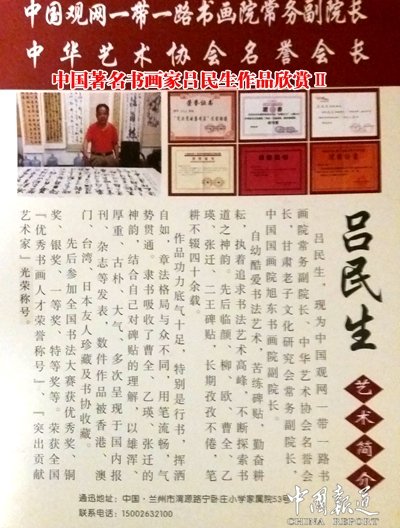 中国观网一带一路书画院常务副院长
中华艺术协会名誉会长
中国著名书画家吕民生作品欣赏Ⅱ
吕民生
艺术简介
吕民生，现为中国观网一带一路书
画院常务副院长、中华艺术协会名誉会
长、甘肃老子文化研究会常务副院长、
中国国画院旭东书画院副院长。
自幼酷爱书法艺术，苦练碑贴，勤奋耕
耘，执着追求书法艺术高峰，不断探索书
道之神韵。先后临颜、柳、欧、曹全、乙
瑛、张迁、二王碑贴，长期孜孜不倦，笔
耕不辍四十余载。
作品功力底气十足，特别是行书，挥洒
自如，章法格局与众不同，用笔流畅，气
势贯通。隶书吸收了曹全、乙瑛、张迁的
神韵，结合自己对碑贴的理解，以雄浑、
厚重、古朴、大气、多次呈现于国内报
刊、杂志等发表，数件作品被香港、澳
门、台湾、日本友人珍藏及书协收藏。
先后参加全国书法大赛获优秀奖，铜
奖、银奖、一等奖、特等奖等。荣获全国
“优秀书画人才荣誉称号”、“突出贡献
艺术家”光荣称号。
通迅地址：中国·兰州市渭源路宁卧庄小学家属院53号
联系电话：15002632100
中国报道
CHINA REPORT